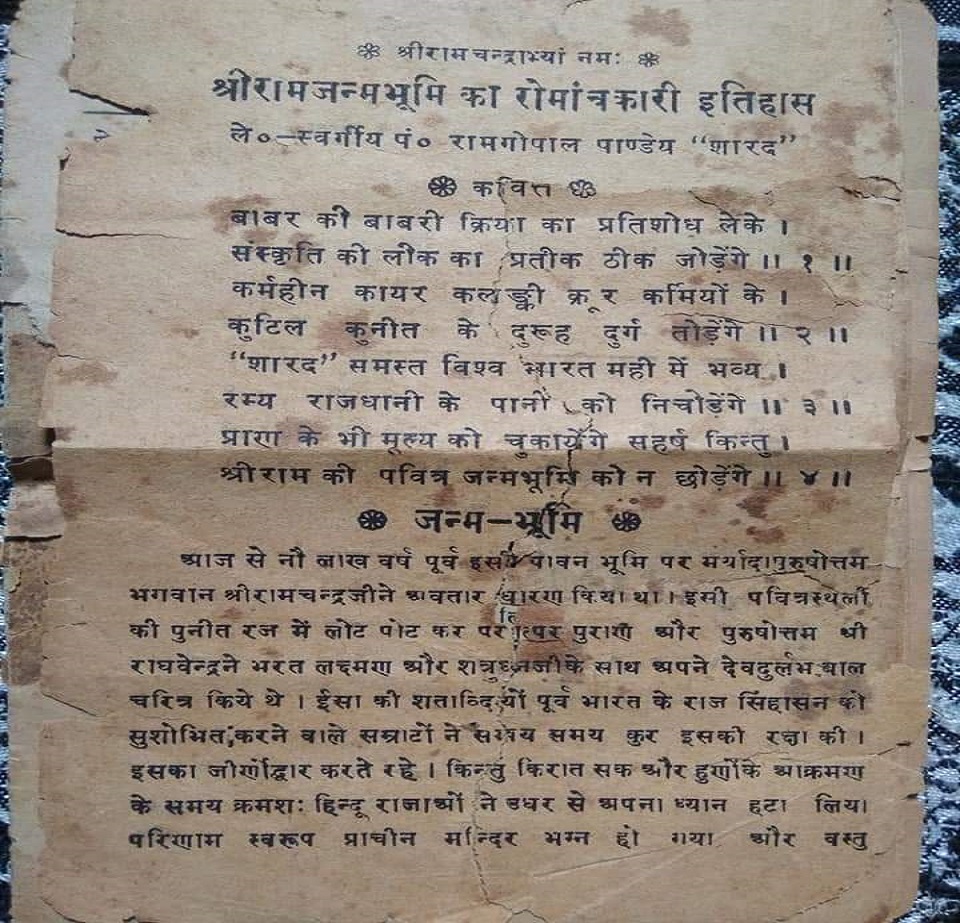 ❁ श्रीरामचन्द्राभ्यां नमः ❁
श्रीरामजन्मभूमि का रोमांचकारी इतिहास
ले०—स्वर्गीय पं० रामगोपाल पाण्डेय "शारद"
❁ कवित्त ❁
बाबर की बाबरी क्रिया का प्रतिशोध लेके ।
संस्कृति की लीक का प्रतीक ठीक जोड़ेंगे ॥ १ ॥
कर्महीन कायर कलङ्की क्रूर कर्मियों के ।
कुटिल कुनीत के दुरूह दुर्ग तोड़ेंगे ॥ २ ॥
"शारद" समस्त विश्व भारत मही में भव्य ।
रम्य राजधानी के पानी को निचोड़ेंगे ॥ ३ ॥
प्राण के भी मूल्य को चुकायेंगे सहर्ष किन्तु ।
श्रीराम की पवित्र जन्मभूमि को न छोड़ेंगे ॥ ४ ॥
❁ जन्म—भूमि ❁
आज से नौ लाख वर्ष पूर्व इसी पावन भूमि पर मर्यादापुरुषोत्तम
भगवान श्रीरामचन्द्रजीने अवतार धारण किया था । इसी पवित्रस्थली
की पुनीत रज में लोट पोट कर पुराण और पुरुषोत्तम श्री
राघवेन्द्रने भरत लक्ष्मण और शत्रुघ्नजीके साथ अपने देवदुर्लभ बाल
चरित्र किये थे । ईसा की शताब्दियों पूर्व भारत के राज सिंहासन को
सुशोभित करने वाले सम्राटों ने समय समय कुर इसकी रक्षा की ।
इसका जीर्णोद्वार करते रहे । किन्तु किरात सक और हुणोंके आक्रमण
के समय क्रमशः हिन्दू राजाओं ने उधर से अपना ध्यान हटा लिया
परिणाम स्वरूप प्राचीन मन्दिर भग्न हो गया और वस्तु